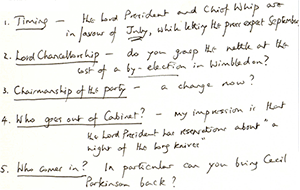 1. Timing — the Lord President and Chief Whip are
in favour of July, while letting the press expect September
2. Lord Chancellorship — do you grasp the nettle at the
cost of a by-election in Wimbledon?
3. Chairmanship of the party — a change now?
4. Who goes out of Cabinet? — my impression is that
the Lord President has reservations about "a
night of the long knives"
5. Who comes in? In particular can you bring Cecil
Parkinson back?